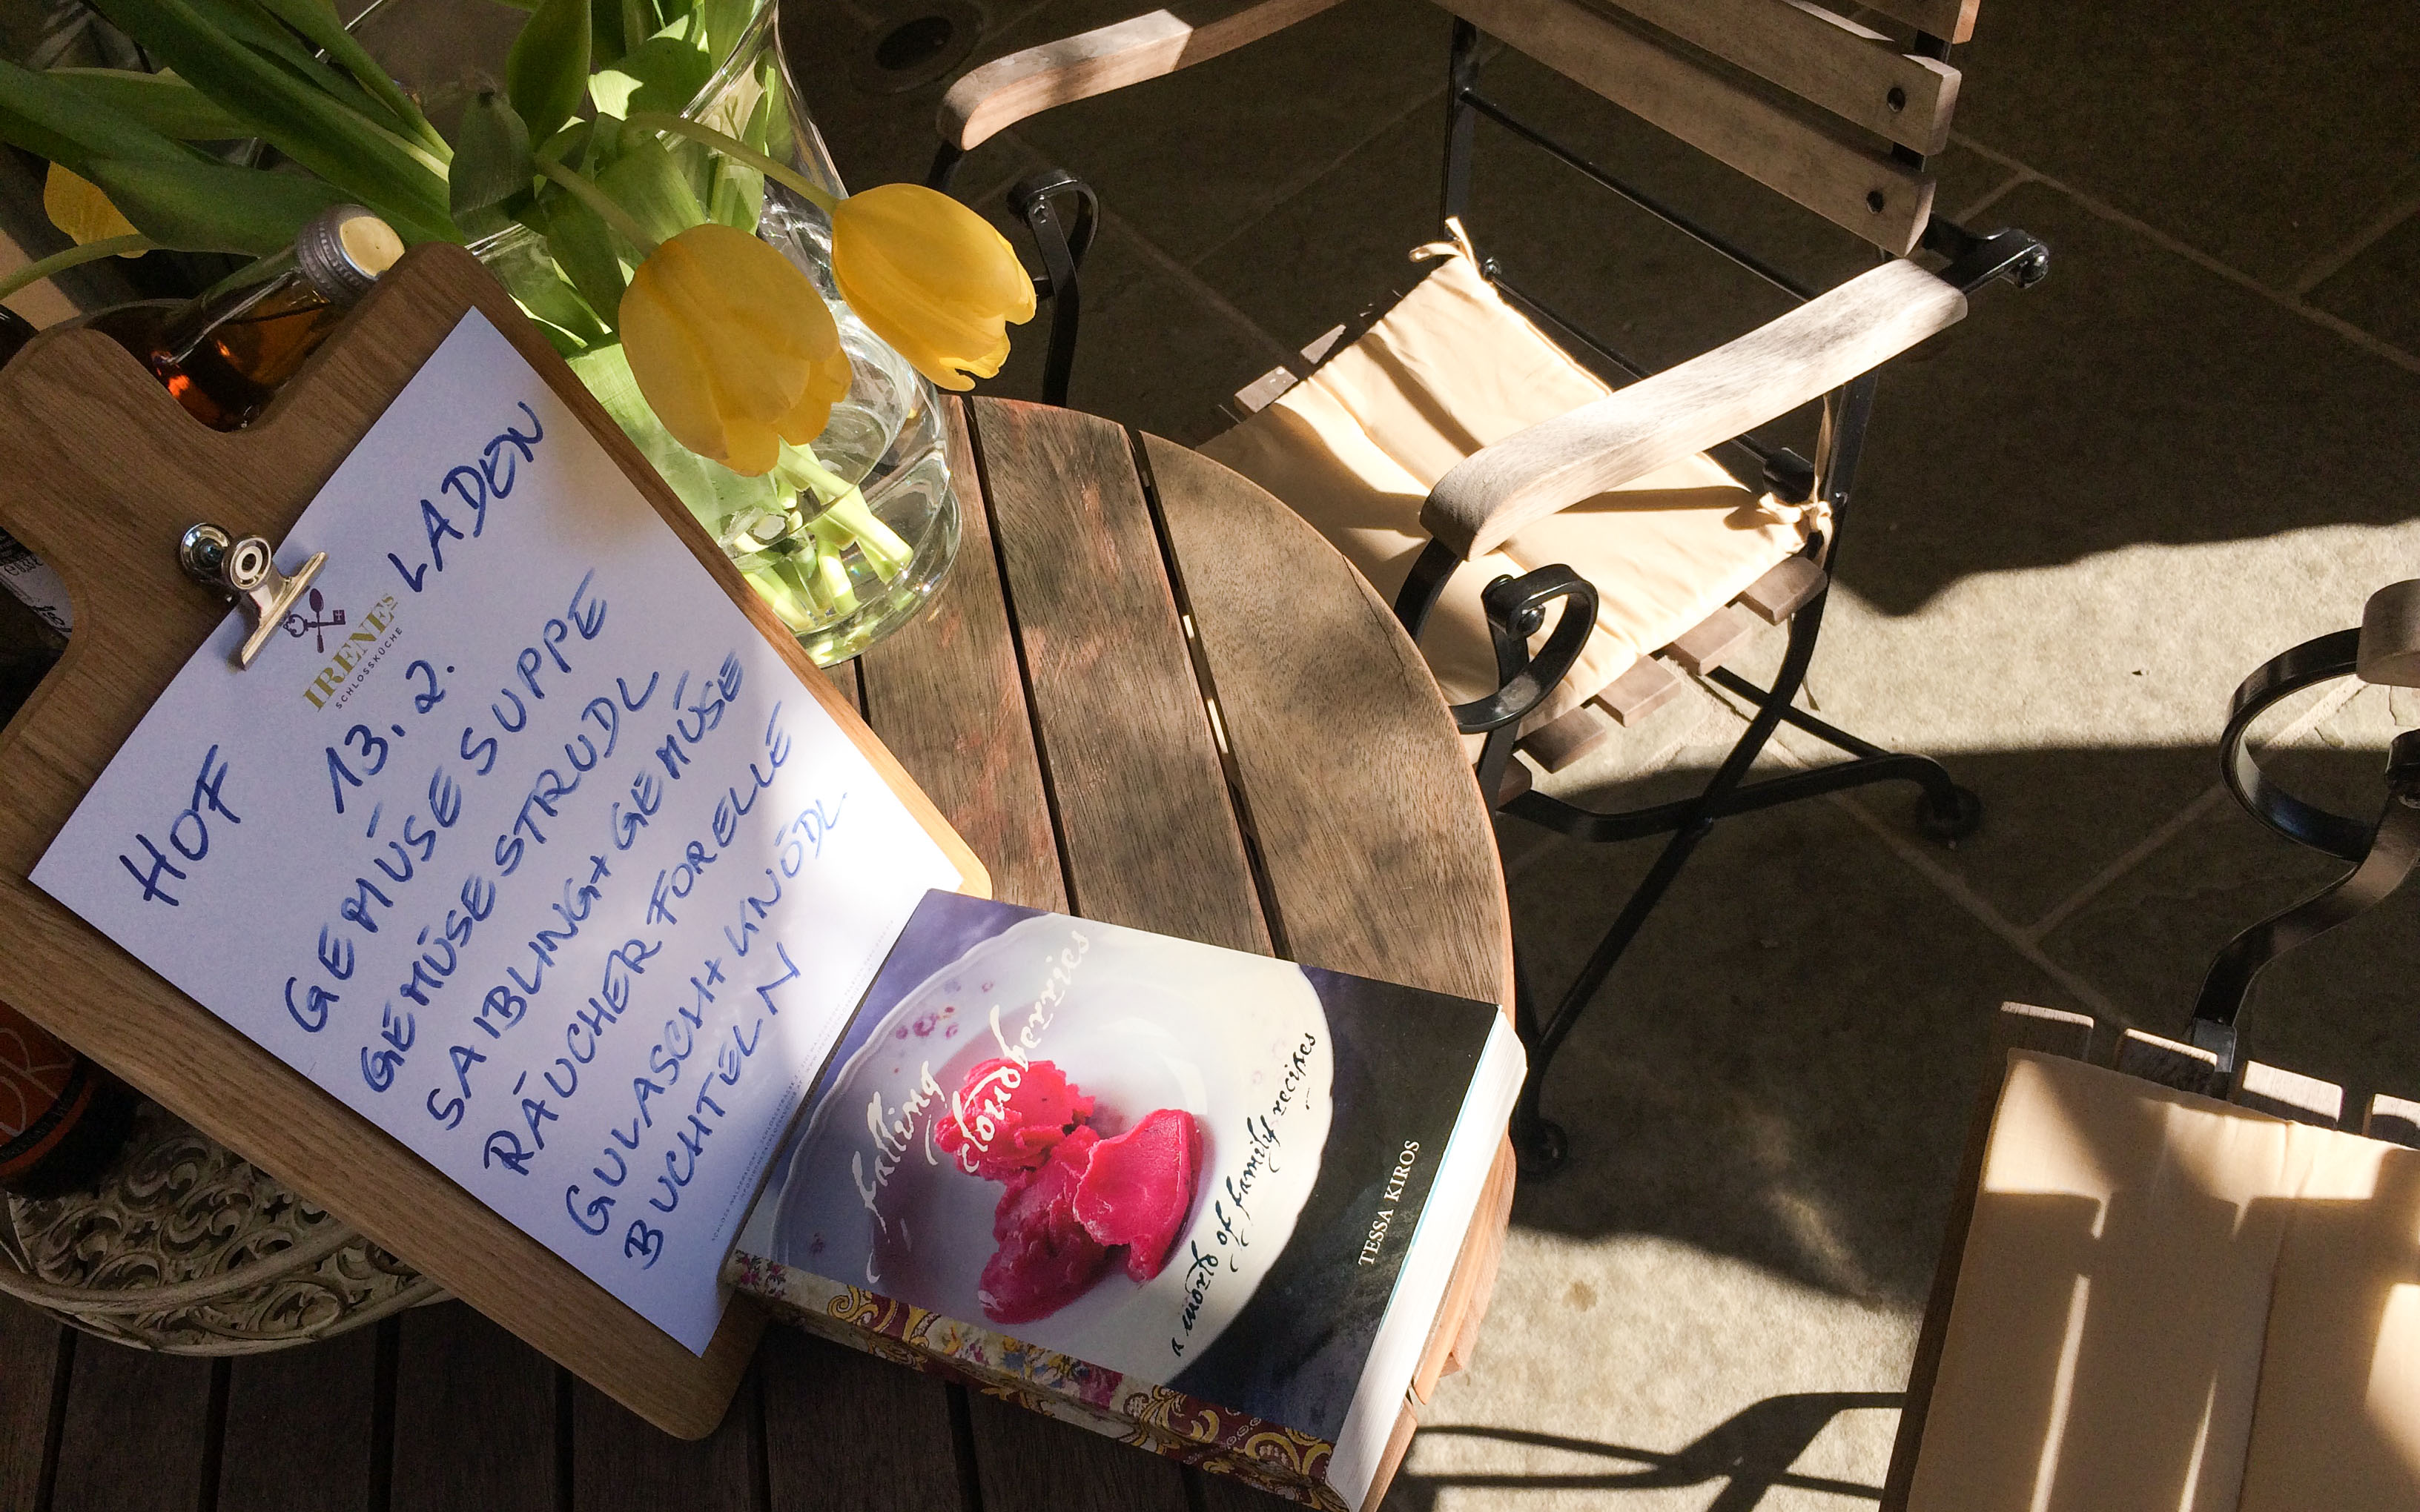 HOF LADEN
IRENE's
SCHLOSSKÜCHE
13. 2.
GEMÜSESUPPE
GEMÜSESTRUDL
SAIBLING + GEMÜSE
RÄUCHERFORELLE
GULASCH + KNÖDL
BUCHTELN
falling
cloudberries
a world of family recipes
TESSA KIROS